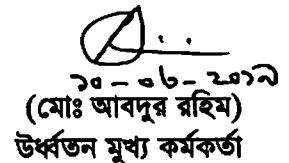 ১০-০৬-২০১৯
(মোঃ আবদুর রহিম)
উর্ধ্বতন মুখ্য কর্মকর্তা